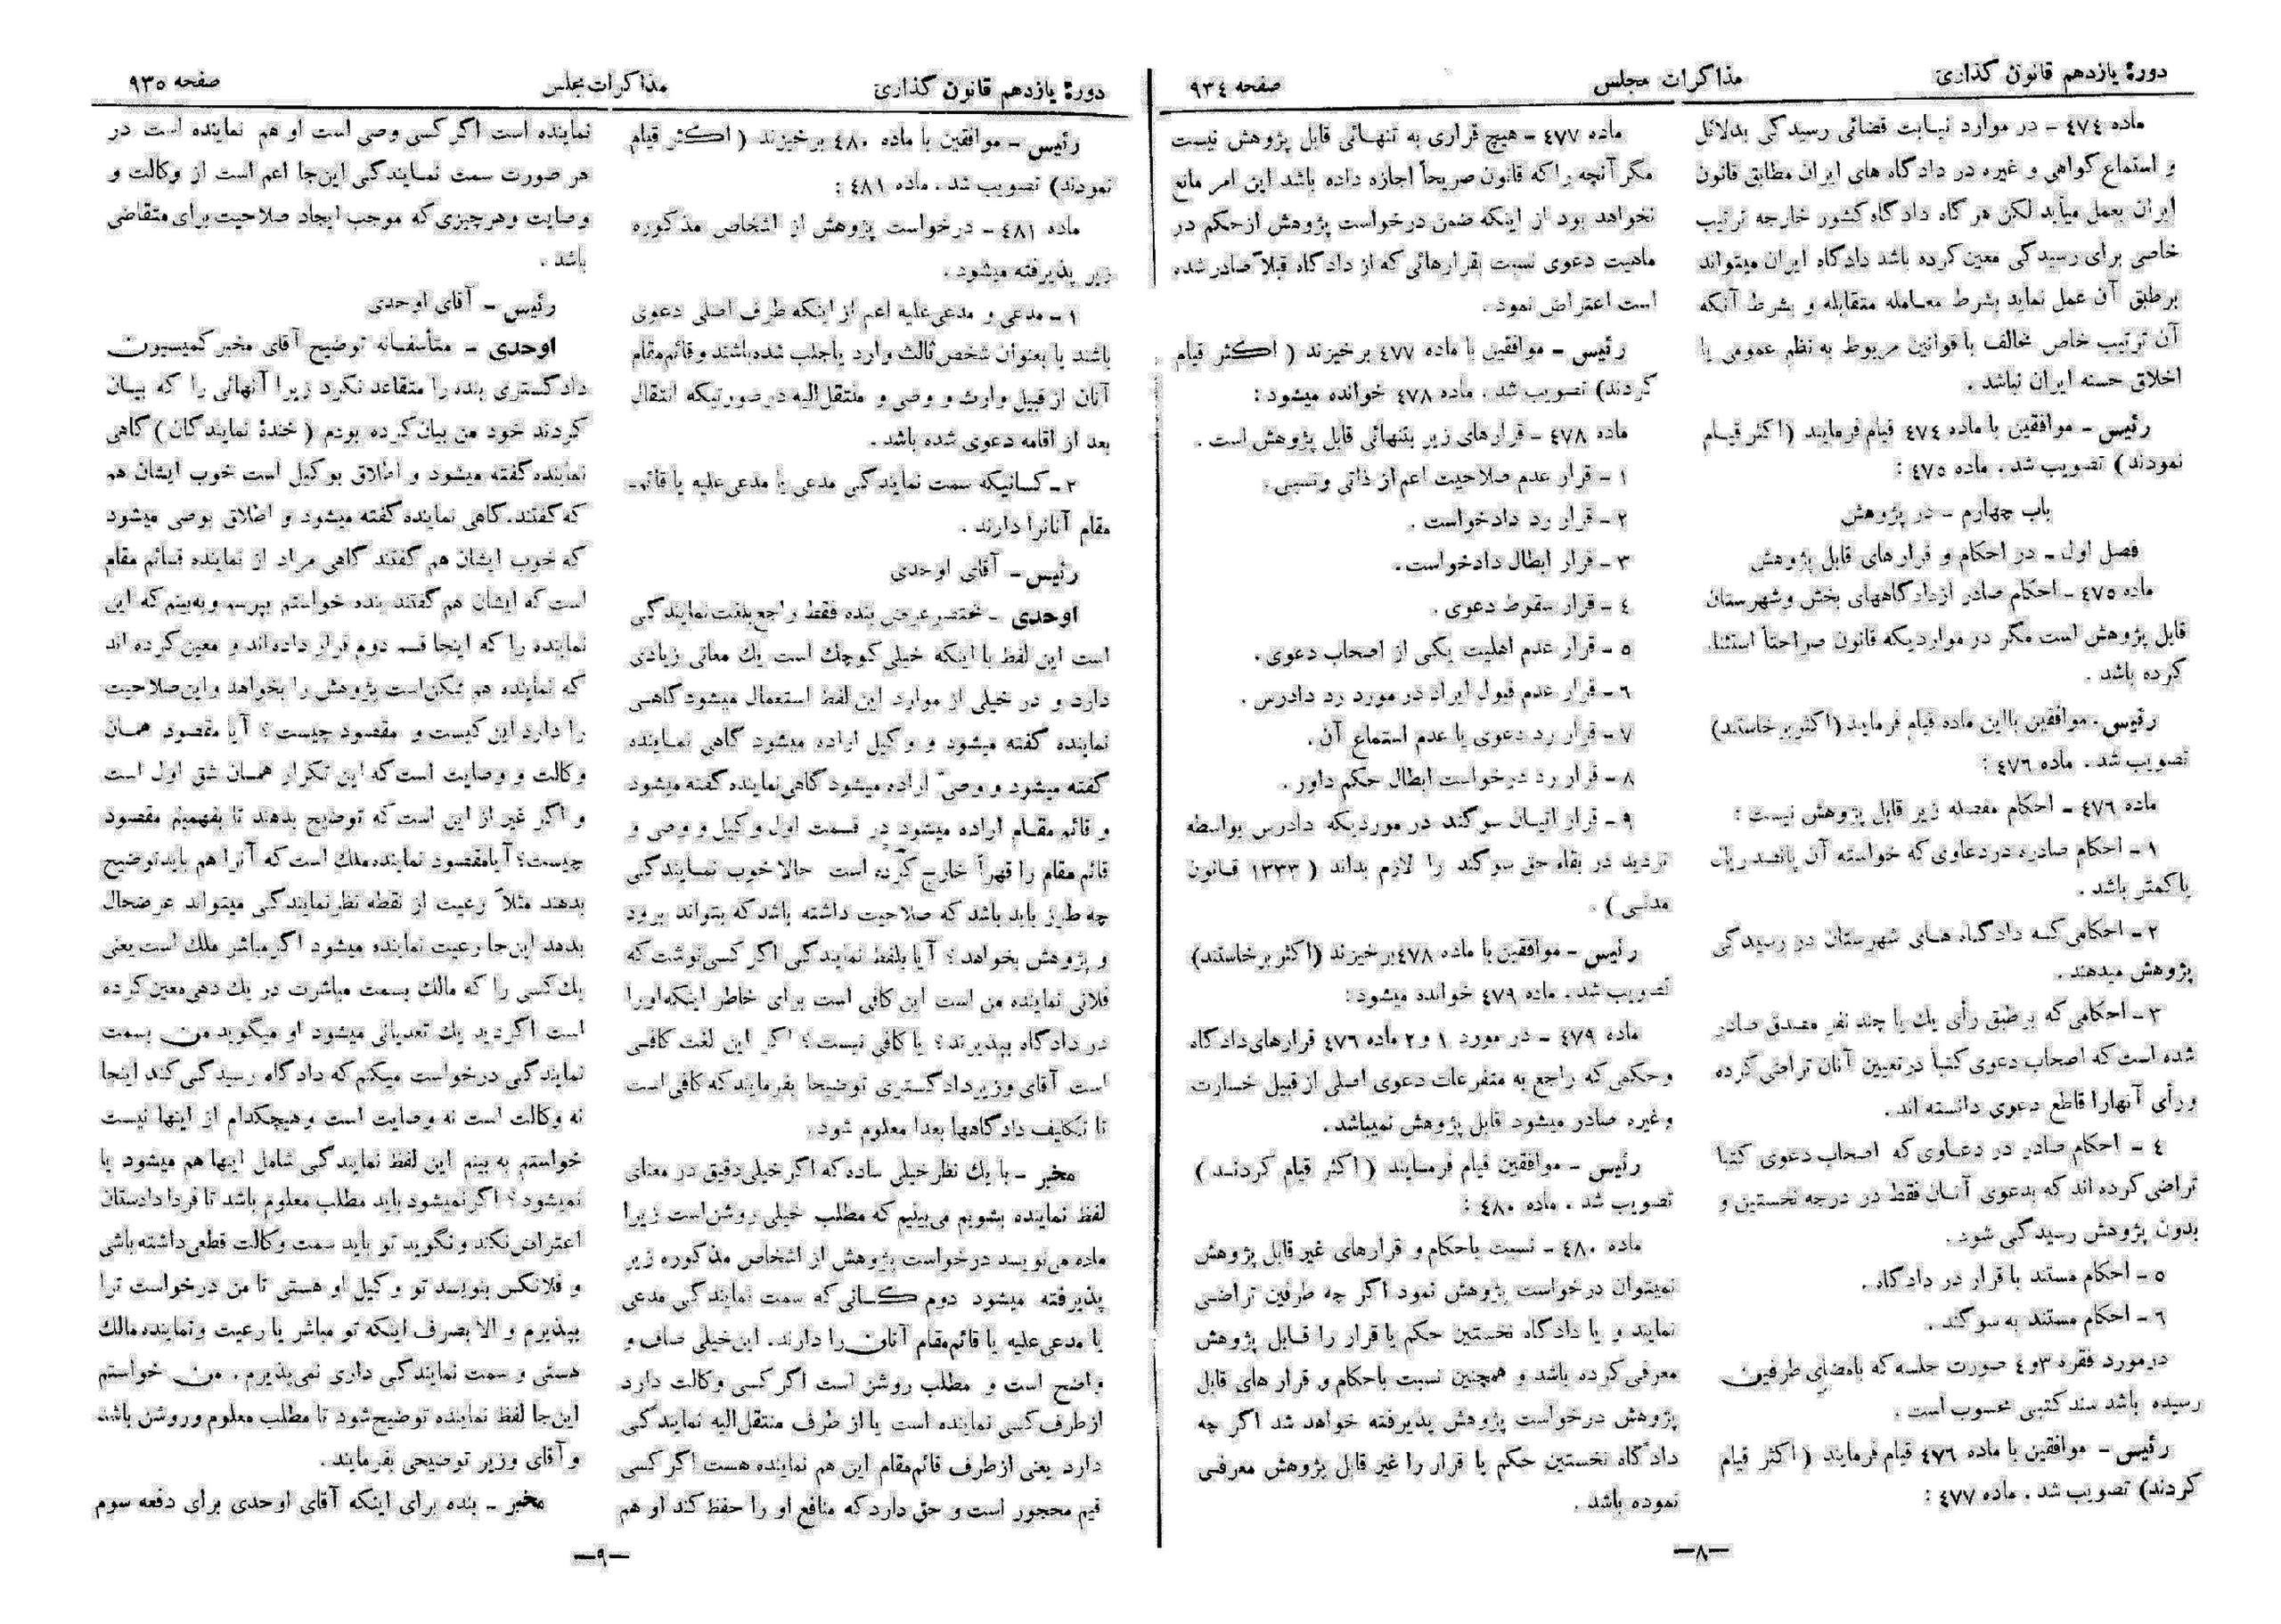 دورهٔ یازدهم قانون گذاری
مذاکرات مجلس
صفحه ۹۳۴
ماده ۴۷۴ – در موارد نیابت قضائی رسیدگی بدلائل
و استماع گواهی و غیره در دادگاه های ایران مطابق قانون
ایران بعمل میآید لکن هر گاه دادگاه کشور خارجه ترتیب
خاصی برای رسیدگی معین کرده باشد دادگاه ایران میتواند
برطبق آن عمل نماید بشرط معامله متقابله و بشرط آنکه
آن ترتیب خاص مخالف با قوانین مربوط به نظم عمومی یا
اخلاق حسنه ایران نباشد .
رئیس – موافقین با ماده ۴۷۴ قیام فرمایند (اکثر قیام
نمودند) تصویب شد . ماده ۴۷۵ :
باب چهارم – در پژوهش
فصل اول – در احکام و قرارهای قابل پژوهش
ماده ۴۷۵ – احکام صادر از دادگاههای بخش و شهرستان
قابل پژوهش است مگر در مواردیکه قانون صراحتاً استثناء
کرده باشد .
رئیس . موافقین با این ماده قیام فرمایند (اکثر برخاستند)
تصویب شد . ماده ۴۷۶ :
ماده ۴۷۶ – احکام مفصله زیر قابل پژوهش نیست :
۱ – احکام صادره در دعاوی که خواسته آن پانصد ریال
یا کمتر باشد .
۲ – احکامی که دادگاه های شهرستان در رسیدگی
پژوهش میدهند .
۳ – احکامی که بر طبق رأی یك یا چند نفر مصدق صادر
شده است که اصحاب دعوی کتباً در تعیین آنان تراضی کرده
و رأی آنهارا قاطع دعوی دانسته اند .
۴ – احکام صادر در دعاوی که اصحاب دعوی کتبا
تراضی کرده اند که بدعوی آنان فقط در درجه نخستین و
بدون پژوهش رسیدگی شود .
۵ – احکام مستند با قرار در دادگاه .
۶ – احکام مستند به سوگند .
درمورد فقره ۳و۴ صورت جلسه که بامضای طرفین
رسیده باشد سند کتبی محسوب است .
رئیس – موافقین با ماده ۴۷۶ قیام فرمایند (اکثر قیام
کردند) تصویب شد . ماده ۴۷۷ :
ماده ۴۷۷ – هیچ قراری به تنهائی قابل پژوهش نیست
مگر آنچه را که قانون صریحاً اجازه داده باشد این امر مانع
نخواهد بود از اینکه ضمن درخواست پژوهش از حکم در
ماهیت دعوی نسبت بقرارهائی که از دادگاه قبلاً صادر شده
است اعتراض نمود .
رئیس – موافقین با ماده ۴۷۷ برخیزند ( اکثر قیام
کردند) تصویب شد . ماده ۴۷۸ خوانده میشود :
ماده ۴۷۸ – قرارهای زیر بتنهائی قابل پژوهش است .
۱ – قرار عدم صلاحیت اعم از ذاتی و نسبی .
۲ – قرار رد دادخواست .
۳ – قرار ابطال دادخواست .
۴ – قرار سقوط دعوی .
۵ – قرار عدم اهلیت یکی از اصحاب دعوی .
۶ – قرار عدم قبول ایراد در مورد رد دادرس .
۷ – قرار رد دعوی یا عدم استماع آن .
۸ – قرار رد درخواست ابطال حکم داور .
۹ – قرار اتیان سوگند در موردیکه دادرس بواسطه
تردید در بقاء حق سوگند را لازم بداند ( ۱۳۳۳ قانون
مدنی ) .
رئیس – موافقین با ماده ۴۷۸ برخیزند (اکثر برخاستند)
تصویب شد . ماده ۴۷۹ خوانده میشود :
ماده ۴۷۹ – در مورد ۱ و ۲ ماده ۴۷۶ قرارهای دادگاه
و حکمی که راجع به متفرعات دعوی اصلی از قبیل خسارت
و غیره صادر میشود قابل پژوهش نمیباشد .
رئیس – موافقین قیام فرمایند ( اکثر قیام کردند )
تصویب شد . ماده ۴۸۰ :
ماده ۴۸۰ – نسبت باحکام و قرارهای غیر قابل پژوهش
نمیتوان درخواست پژوهش نمود اگر چه طرفین تراضی
نمایند و یا دادگاه نخستین حکم یا قرار را قابل پژوهش
معرفی کرده باشد و همچنین نسبت باحکام و قرار های قابل
پژوهش درخواست پژوهش پذیرفته خواهد شد اگر چه
دادگاه نخستین حکم یا قرار را غیر قابل پژوهش معرفی
نموده باشد .
—۸—
دورهٔ یازدهم قانون گذاری
مذاکرات مجلس
صفحه ۹۳۵
رئیس – موافقین با ماده ۴۸۰ برخیزند ( اکثر قیام
نمودند) تصویب شد . ماده ۴۸۱ :
ماده ۴۸۱ – درخواست پژوهش از اشخاص مذکوره
زیر پذیرفته میشود .
۱ – مدعی و مدعی علیه اعم از اینکه طرف اصلی دعوی
باشند یا بعنوان شخص ثالث وارد یا جلب شده باشند و قائم مقام
آنان از قبیل وارث و وصی و منتقل الیه در صورتیکه انتقال
بعد از اقامه دعوی شده باشد .
۲ – کسانیکه سمت نمایندگی مدعی یا مدعی علیه یا قائم-
مقام آنانرا دارند .
رئیس – آقای اوحدی
اوحدی – مختصر عرض بنده فقط راجع بلغت نمایندگی
است این لفظ با اینکه خیلی کوچك است یك معانی زیادی
دارد و در خیلی از موارد این لفظ استعمال میشود گاهی
نماینده گفته میشود و وکیل اراده میشود گاهی نماینده
گفته میشود و وصی اراده میشود گاهی نماینده گفته میشود
و قائم مقام اراده میشود در قسمت اول وکیل و وصی و
قائم مقام را قهراً خارج کرده است حالا خوب نمایندگی
چه طرز باید باشد که صلاحیت داشته باشد که بتواند برود
و پژوهش بخواهد؟ آیا بلفظ نمایندگی اگر کسی نوشت که
فلانی نماینده من است این کافی است برای خاطر اینکه اورا
در دادگاه بپذیرند؟ یا کافی نیست؟ اگر این لغت کافی
است آقای وزیر دادگستری توضیحا بفرمایند که کافی است
تا تکلیف دادگاهها بعدا معلوم شود .
مخبر – با یك نظر خیلی ساده که اگر خیلی دقیق در معنای
لفظ نماینده بشویم می بینیم که مطلب خیلی روشن است زیرا
ماده می نویسد درخواست پژوهش از اشخاص مذکوره زیر
پذیرفته میشود دوم کسانی که سمت نمایندگی مدعی
یا مدعی علیه یا قائم مقام آنان را دارند . این خیلی صاف و
واضح است و مطلب روشن است اگر کسی وکالت دارد
از طرف کسی نماینده است یا از طرف منتقل الیه نمایندگی
دارد یعنی از طرف قائم مقام این هم نماینده هست اگر کسی
قیم محجور است و حق دارد که منافع او را حفظ کند او هم
نماینده است اگر کسی وصی است او هم نماینده است در
هر صورت سمت نمایندگی این جا اعم است از وکالت و
وصایت و هر چیزی که موجب ایجاد صلاحیت برای متقاضی
باشد .
رئیس – آقای اوحدی
اوحدی – متأسفانه توضیح آقای مخبر کمیسیون
دادگستری بنده را متقاعد نکرد زیرا آنهائی را که بیان
کردند خود من بیان کرده بودم ( خندهٔ نمایندگان ) گاهی
نماینده گفته میشود و اطلاق بوکیل است خوب ایشان هم
که گفتند. گاهی نماینده گفته میشود و اطلاق بوصی میشود
که خوب ایشان هم گفتند گاهی مراد از نماینده قائم مقام
است که ایشان هم گفتند بنده خواستم بپرسم و به بینم که این
نماینده را که اینجا قسم دوم قرار داده اند و معین کرده اند
که نماینده هم ممکن است پژوهش را بخواهد و این صلاحیت
را دارد این کیست و مقصود چیست؟ آیا مقصود همان
وکالت و وصایت است که این تکرار همان شق اول است
و اگر غیر از این است که توضیح بدهند تا بفهمیم مقصود
چیست؟ آیا مقصود نماینده ملك است که آنرا هم باید توضیح
بدهند مثلاً رعیت از نقطه نظر نمایندگی میتواند عرضحال
بدهد این جا رعیت نماینده میشود اگر مباشر ملك است یعنی
یك کسی را که مالك بسمت مباشرت در یك دهی معین کرده
است اگر دید یك تعدیاتی میشود او میگوید من بسمت
نمایندگی درخواست میکنم که دادگاه رسیدگی کند اینجا
نه وکالت است نه وصایت است و هیچکدام از اینها نیست
خواستم به بینم این لفظ نمایندگی شامل اینها هم میشود یا
نمیشود؟ اگر نمیشود باید مطلب معلوم باشد تا فردا دادستان
اعتراض نکند و نگوید تو باید سمت وکالت قطعی داشته باشی
و فلانکس بنویسد تو وکیل او هستی تا من درخواست ترا
بپذیرم و الا بصرف اینکه تو مباشر یا رعیت و نماینده مالك
هستی و سمت نمایندگی داری نمی پذیرم . من خواستم
این جا لفظ نماینده توضیح شود تا مطلب معلوم و روشن باشد
و آقای وزیر توضیحی بفرمایند .
مخبر – بنده برای اینکه آقای اوحدی برای دفعه سوم
—۹—